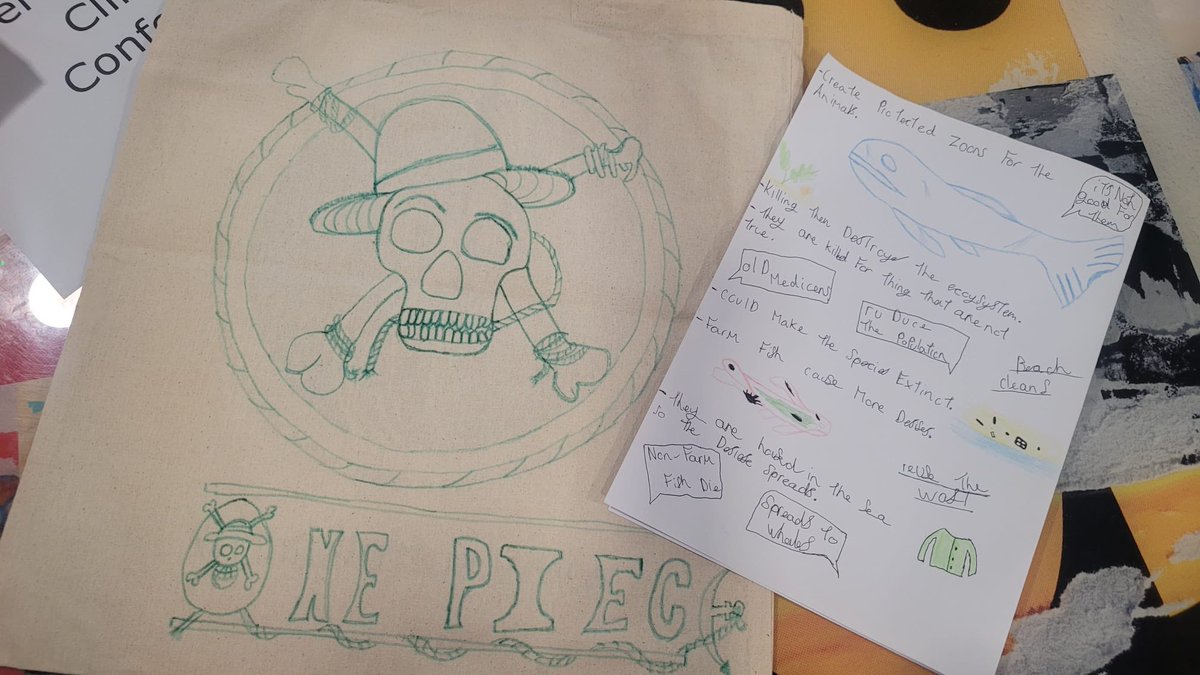 Cli
Confe
NE PIEC
-Create Pictected Zoons For the
Animals.
its Not
good For
them
-Killing then Destroys the eccysystem.
-they are killed For thing that are not
true.
olD Medicens
ruDuce
the Population
-ccuID Make the Special Extinct.
-Farm Fish cause More Desises.
Beach
cleans
-they are housed in the sea
so the Desises spreads.
Non-Farm
Fish Die
Spreads to
Whales
reuse the
wast